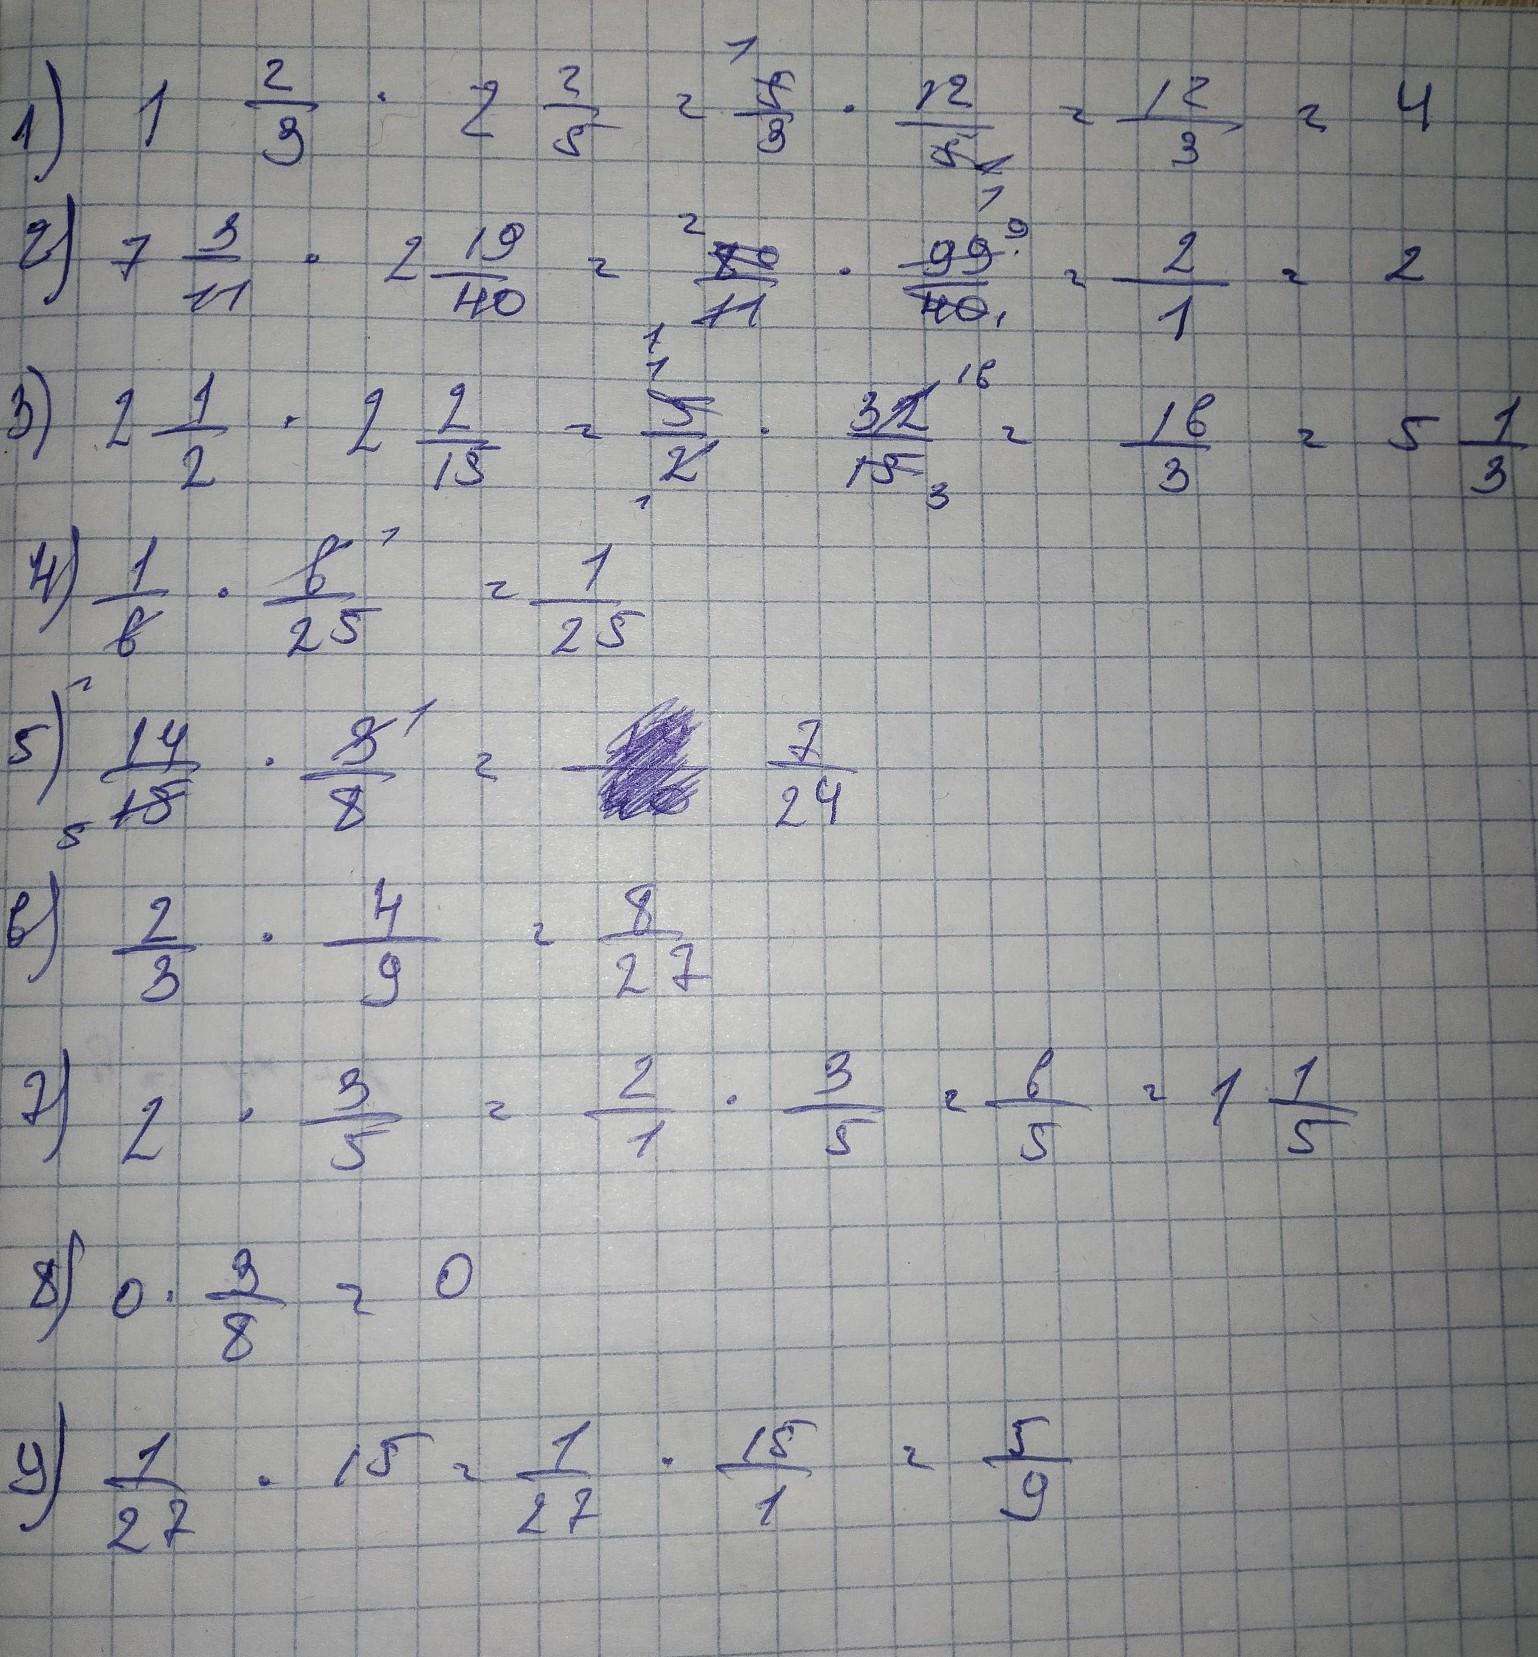 1) 1 2/3 · 2 2/5 = 5/3 · 12/5 = 12/3 = 4
2) 7 3/11 · 2 19/40 = 80/11 · 99/40 = 2/1 = 2
3) 2 1/2 · 2 2/15 = 5/2 · 32/15 = 16/3 = 5 1/3
4) 1/6 · 6/25 = 1/25
5) 14/15 · 3/8 = 7/24
6) 2/3 · 4/9 = 8/27
7) 2 · 3/5 = 2/1 · 3/5 = 6/5 = 1 1/5
8) 0 · 3/8 = 0
9) 1/27 · 15 = 1/27 · 15/1 = 5/9